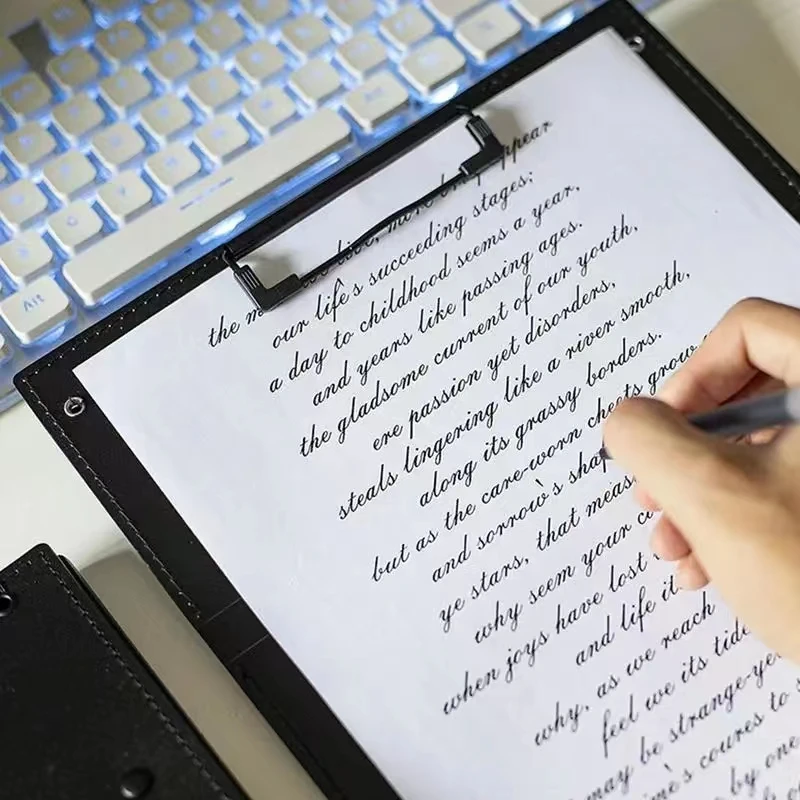 the we live, more appear
our life's succeeding stages;
a day to childhood seems a year,
and years like passing ages.
the gladsome current of our youth,
ere passion yet disorders,
steals lingering like a river smooth,
along its grassy borders.
but as the care-worn cheets grow
and sorrow's
ye stars, that
why seem your
when joys have lost
and life
why, as we reach
feel we its
may be strange-
coures to
by one
Alt